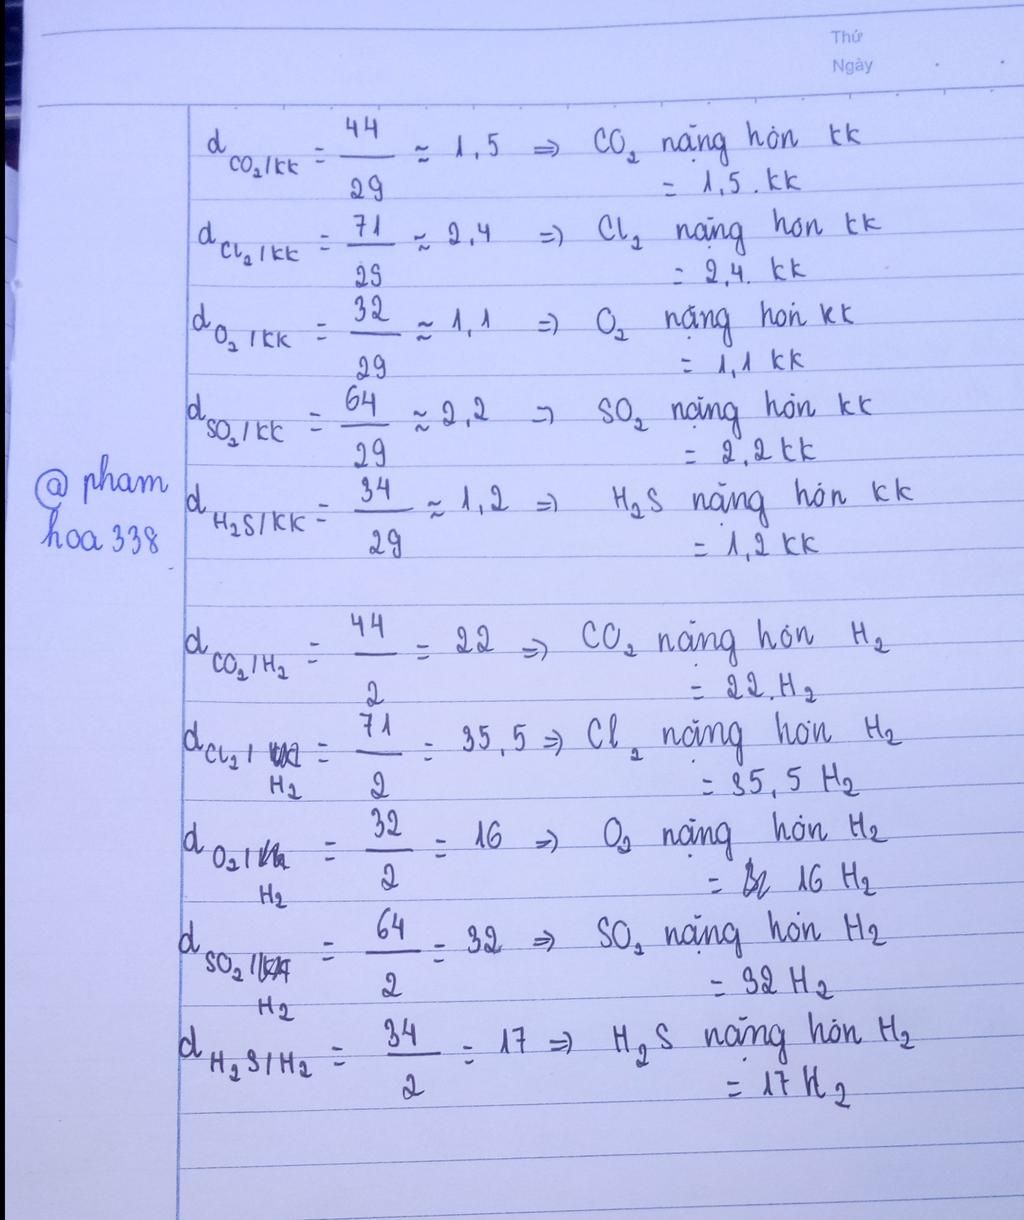 Thứ
Ngày
d CO₂/KK = 44/29 ≈ 1,5 => CO₂ nặng hơn kk
= 1,5 . kk
d Cl₂/KK = 71/29 ≈ 2,4 => Cl₂ nặng hơn kk
= 2,4. kk
d O₂/KK = 32/29 ≈ 1,1 => O₂ nặng hơn kk
= 1,1 kk
d SO₂/KK = 64/29 ≈ 2,2 => SO₂ nặng hơn kk
= 2,2 kk
@ pham
hoa 338
d H₂S/KK = 34/29 ≈ 1,2 => H₂S nặng hơn kk
= 1,2 kk
d CO₂/H₂ = 44/2 = 22 => CO₂ nặng hơn H₂
= 22.H₂
d Cl₂/H₂ = 71/2 = 35,5 => Cl₂ nặng hơn H₂
= 35,5 H₂
d O₂/H₂ = 32/2 = 16 => O₂ nặng hơn H₂
= 16 H₂
d SO₂/H₂ = 64/2 = 32 => SO₂ nặng hơn H₂
= 32 H₂
d H₂S/H₂ = 34/2 = 17 => H₂S nặng hơn H₂
= 17 H₂